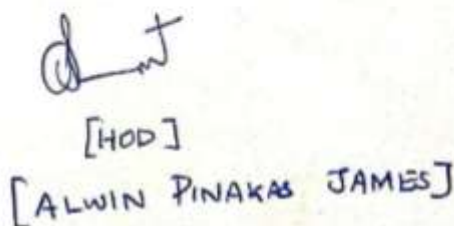 [HOD]
[ALWIN PINAKAS JAMES]